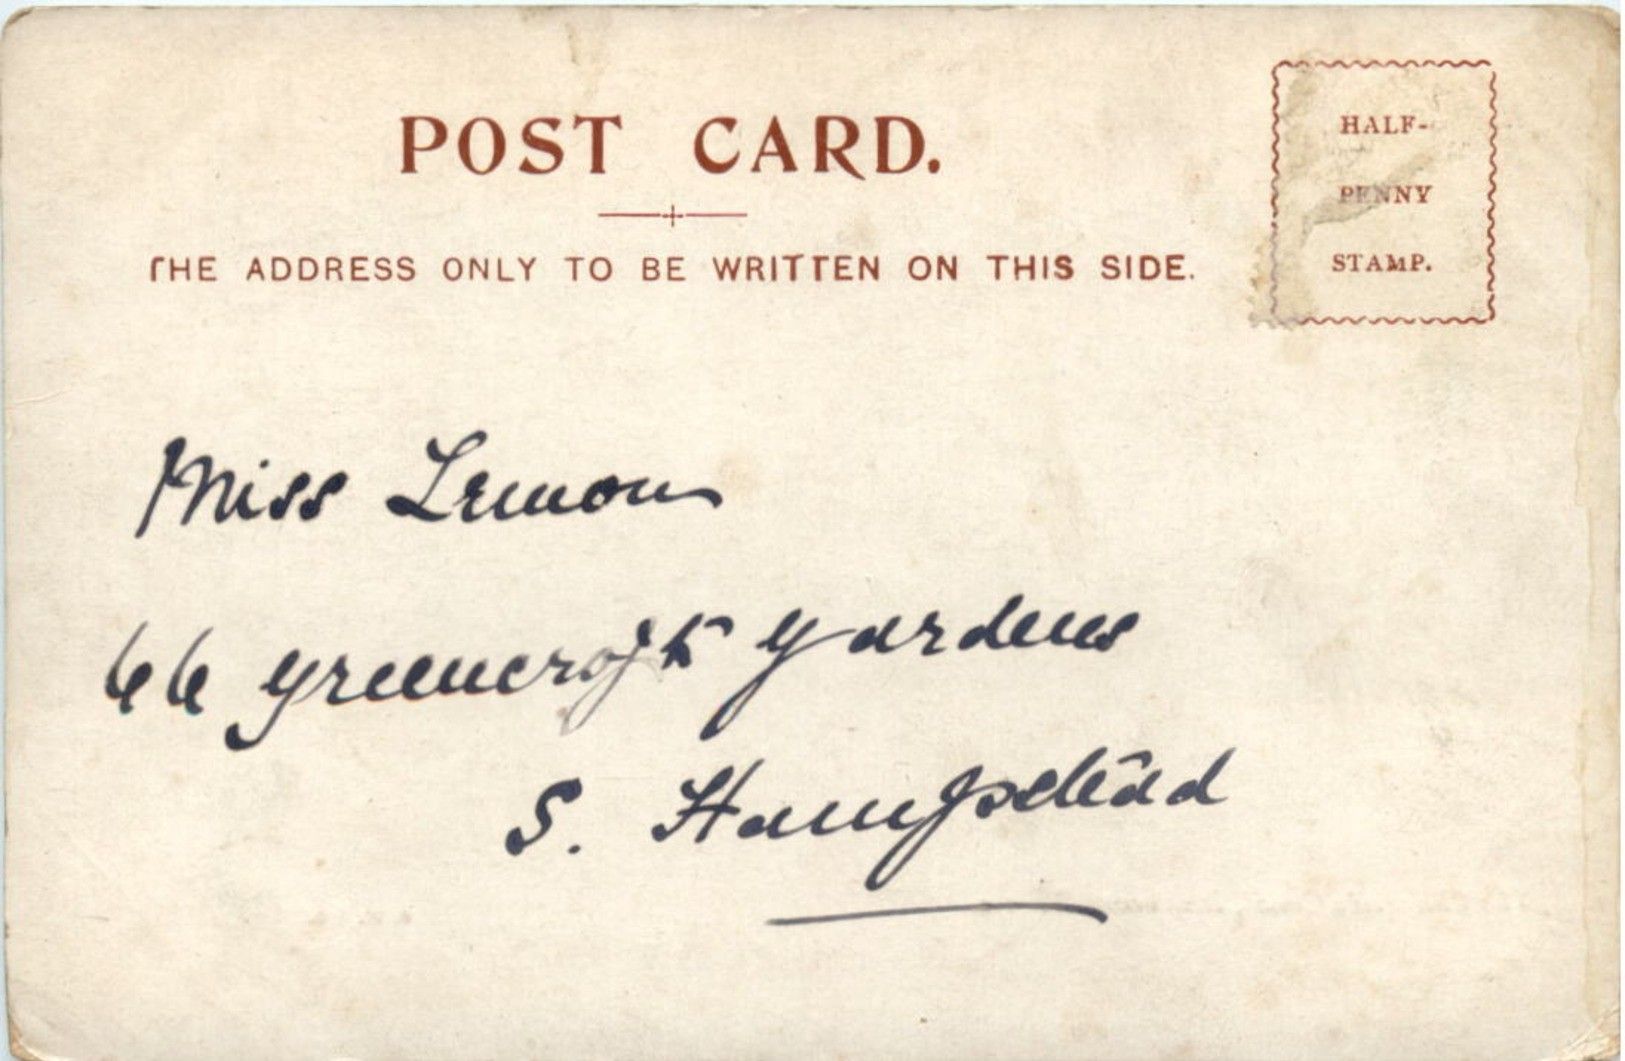 POST CARD.
THE ADDRESS ONLY TO BE WRITTEN ON THIS SIDE.
HALF-
PENNY
STAMP.
Miss Lemon
66 Greencroft Gardens
S. Hampstead